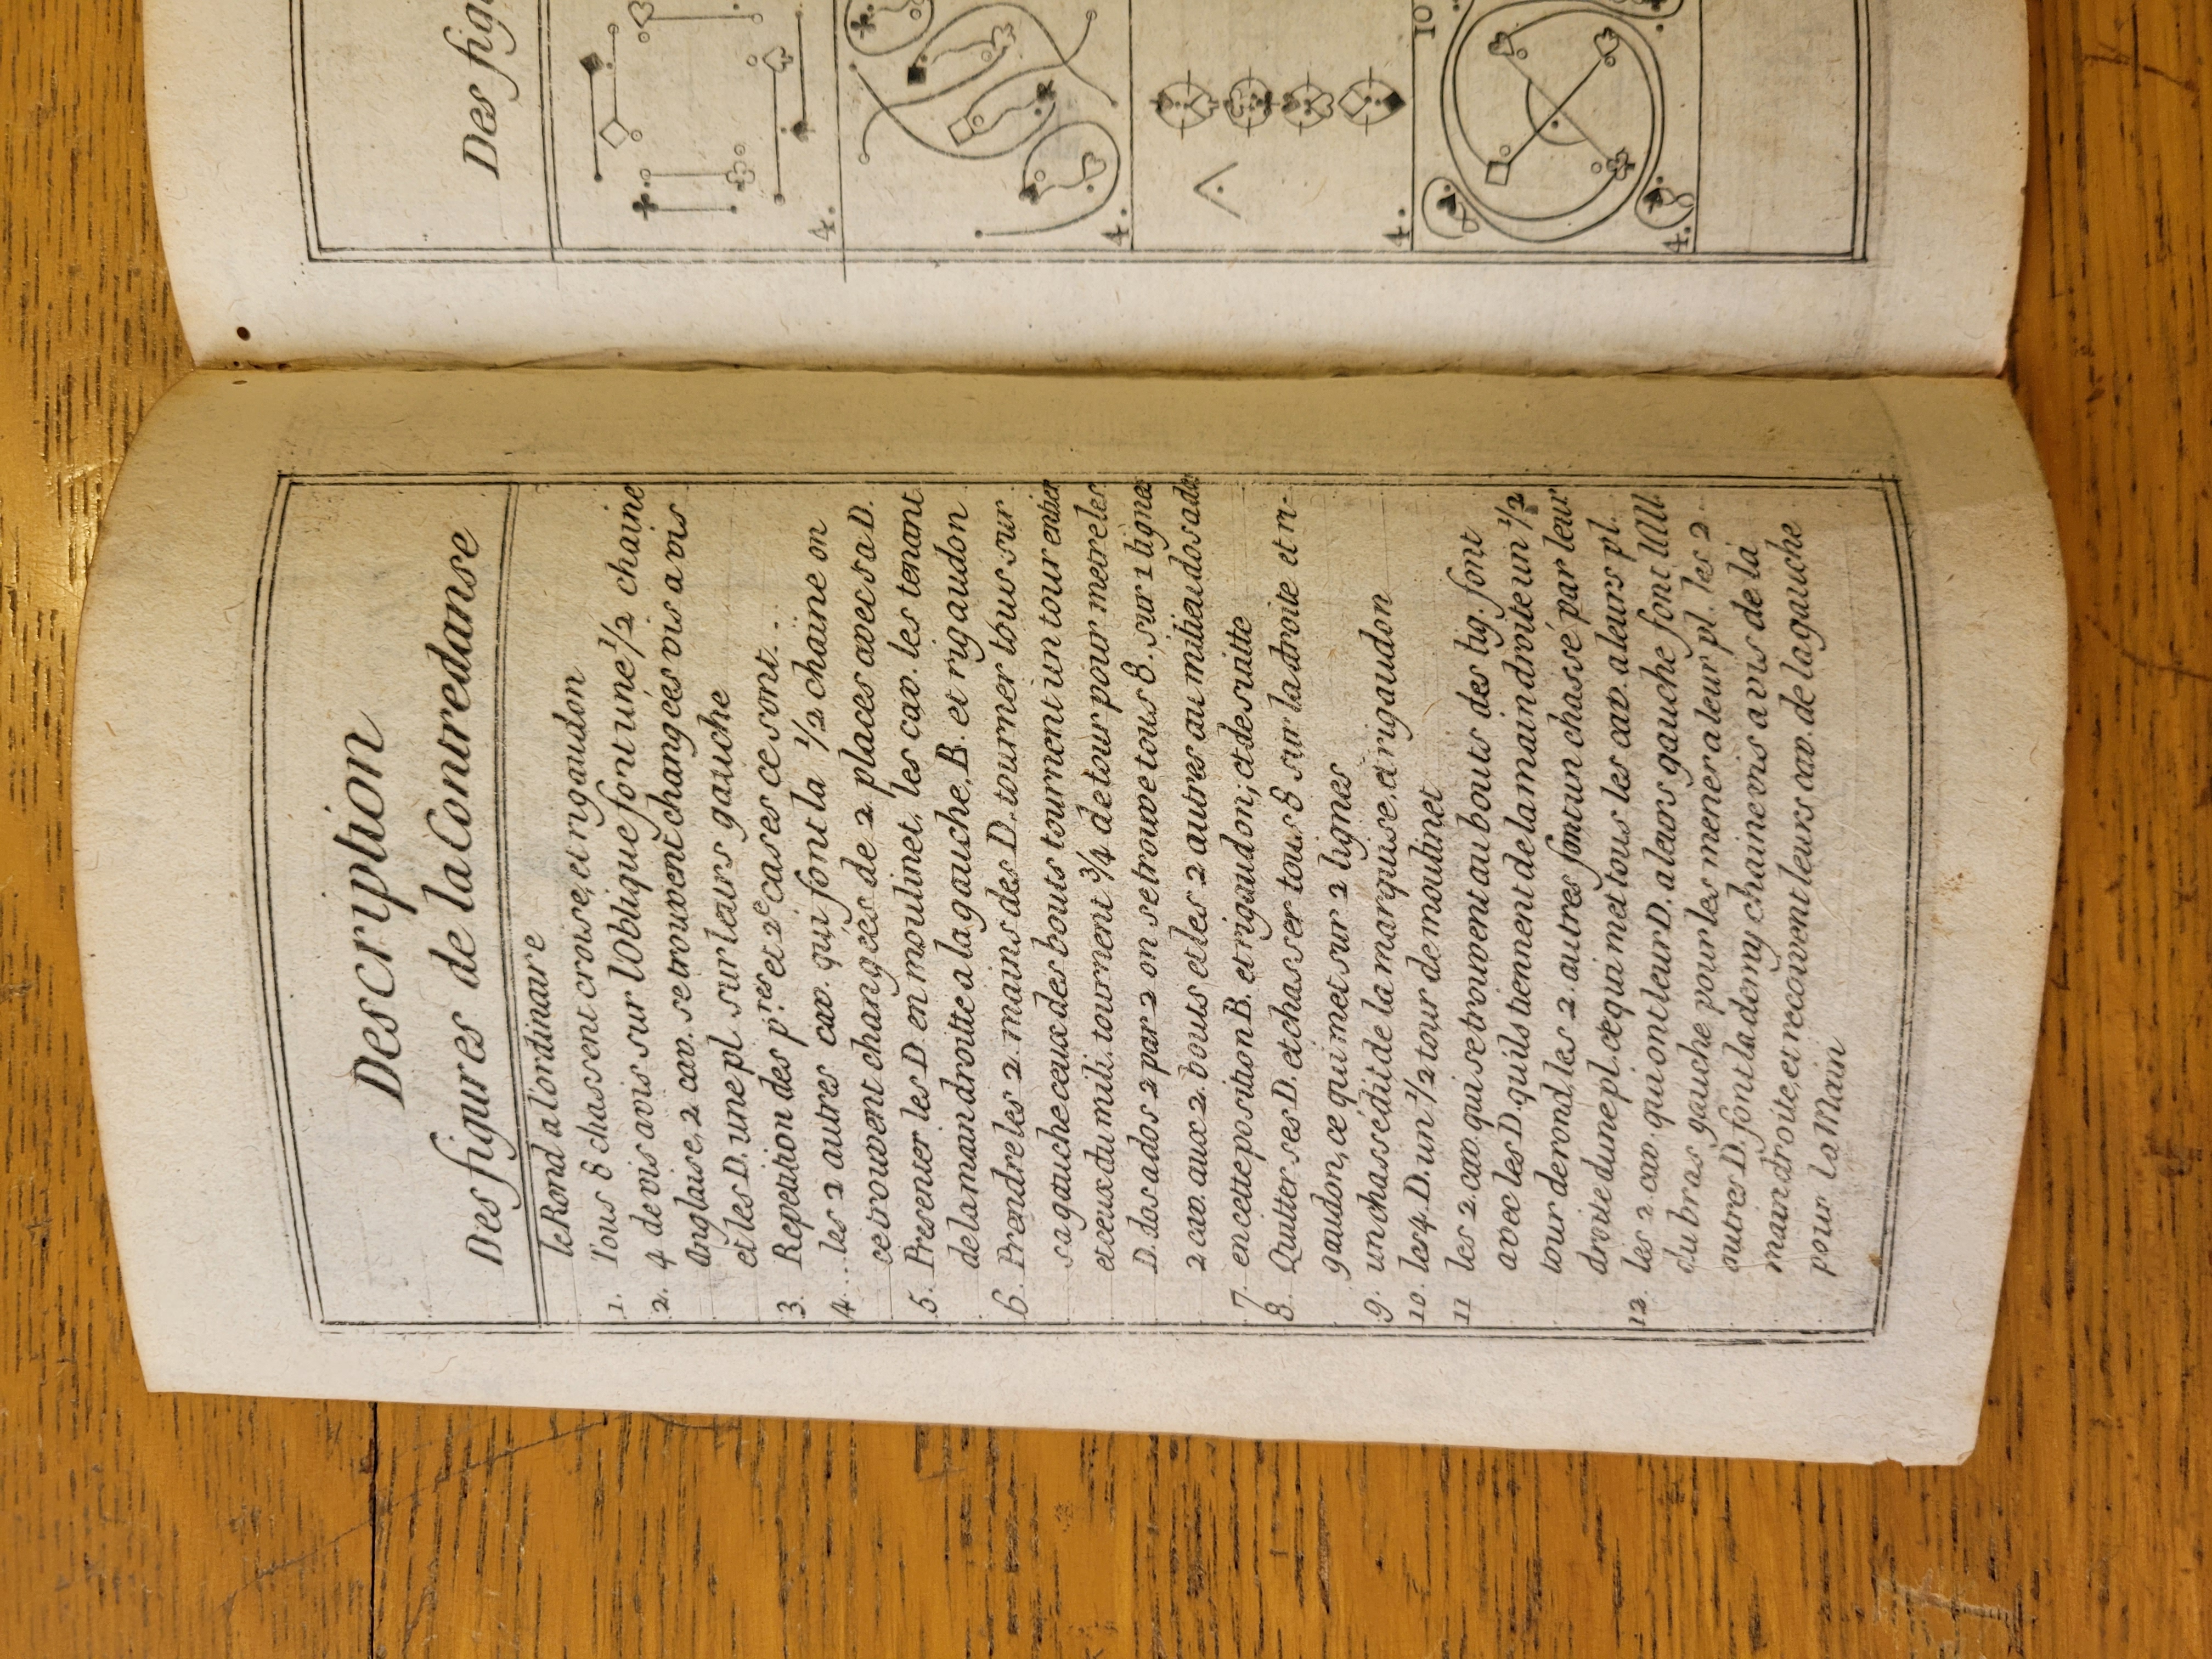 Description
Des figures de la Contredanse
le Rond a l'ordinaire
1. Tous 8 chassent croisé, et rigaudon
2. 4 de vis avis sur l'Oblique font une ½ chaine
Anglaise, 2 cav. se trouvent changées vis a vis
et les D. une pl. sur leurs gauche
3. Repetition des p.res et 2e cases ce sont...
4... les 2 autres cav. qui font la ½ chaine on
ce trouvent changées de 2 places avec sa D.
5. Presenter les D. en moulinet, les cav. les tenant
de la main droitte a la gauche, B. et rigaudon
6. Prendre les 2 mains des D. tourner tous sur
sa gauche ceux des bouts tournent un tour entier
et ceux du mili. tournent ¾ de tour pour metre les
D. dos a dos 2 par 2 on se trouve tous 8. sur 1 ligne
2 cav. aux 2. bouts et les 2 autres au milieu dos a dos
7. en cette position B. et rigaudon, et de suitte
8. Quitter ses D. et chasser tous 8 sur la droite et ri-
gaudon, cé qui met sur 2 lignes
9. un chassé dit de la marquise, et rigaudon
10. les 4. D. un ½ tour de moulinet
11 les 2. cav. qui se trouvent au bouts des lig. font
avec les D. quils tiennent de la main droite un ½
tour de rond, les 2. autres font un chassé par leur
droite dune pl. ce qui met tous les cav. a leurs pl.
12. les 2 cav. qui ont leur D. a leurs gauche font
du bras gauche pour les mener a leur pl. les 2
autres D. font la demy chaine vis a vis de la
main droite, et recoivent leurs cav. de la gauche
pour la Main
Des figu
4.
4.
4.
10
4.